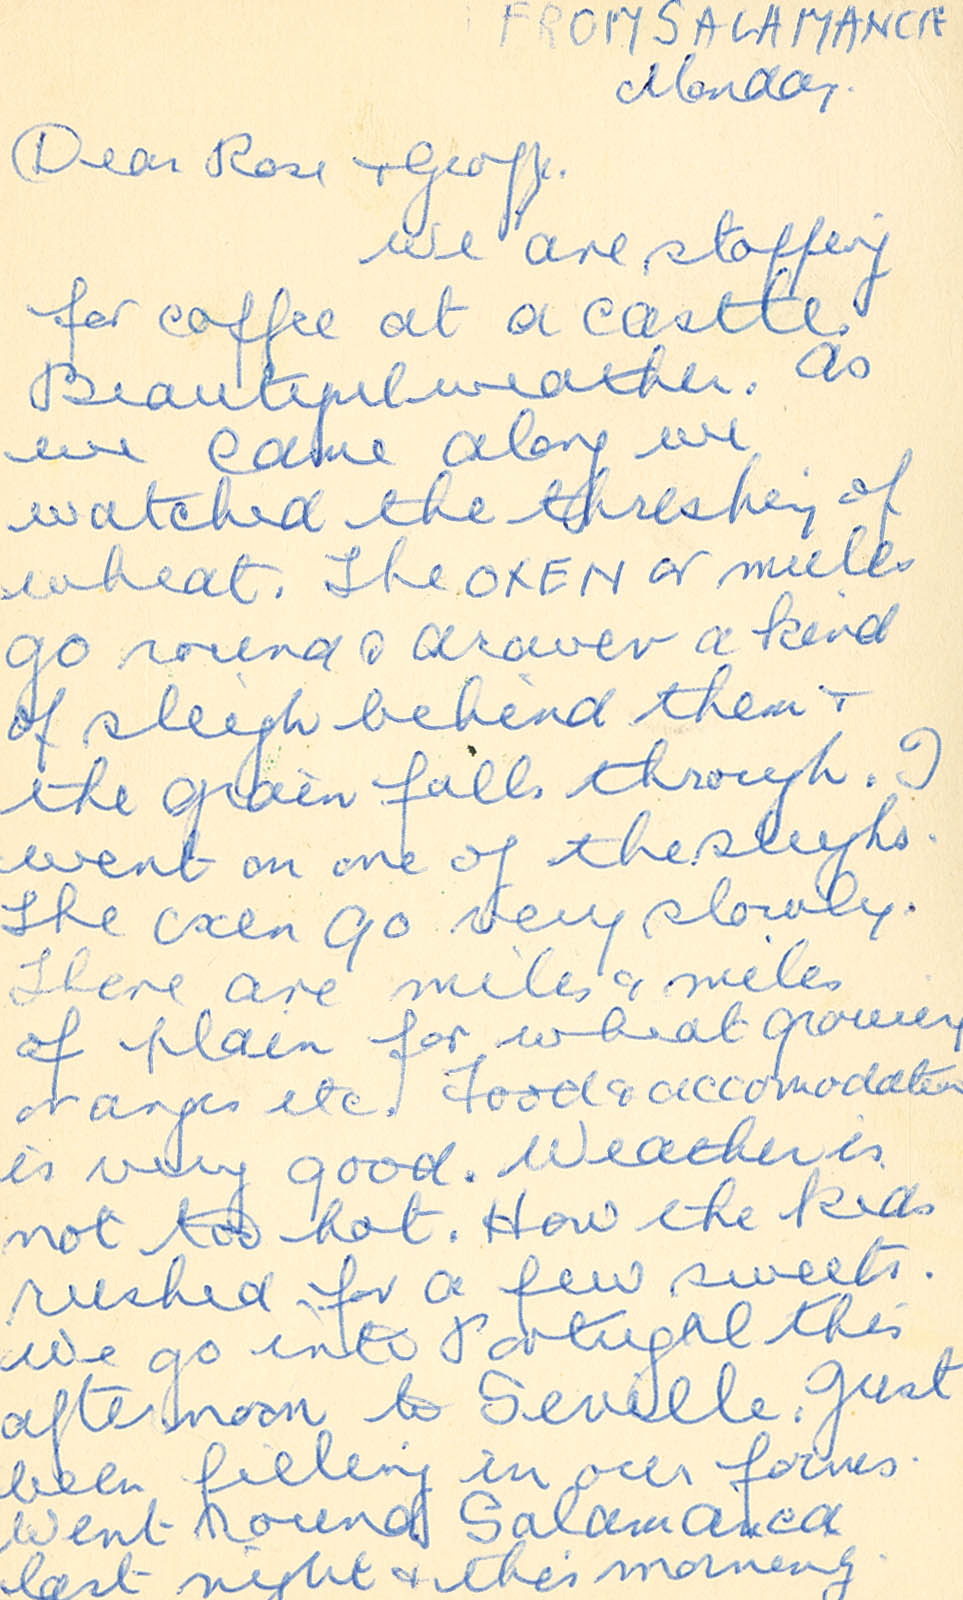 FROM SALAMANCA
Monday.
Dear Rose + Geoff.
We are stopping
for coffee at a castle.
Beautiful weather. As
we came along we
watched the threshing of
wheat. The OXEN or mules
go round & drawer a kind
of sleigh behind them +
the grain falls through. I
went on one of the sleighs.
The oxen go very slowly.
There are miles & miles
of plain for wheat growing
oranges etc. Food & accomodation
is very good. Weather is
not too hot. How the kids
rushed for a few sweets.
We go into Portugal this
afternoon to Seville. Just
been filling in our forms.
Went round Salamanca
last night & this morning.